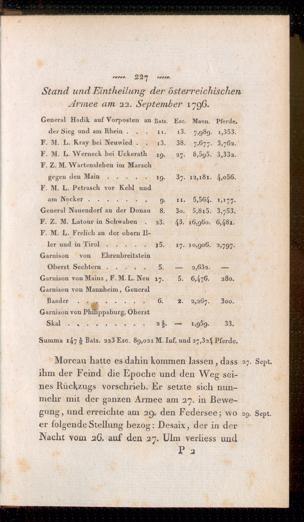 227
Stand und Eintheilung der österreichischen
Armee am 22. September 1796.
General Hadik auf Vorposten an Bats. Esc. Mann. Pferde.
der Sieg und am Rhein . . . 11. 13. 7,989. 1,353.
F. M. L. Kray bei Neuwied . . 13. 38. 7,677. 3,762.
F. M. L. Werneck bei Uckerath 19. 27. 8,595. 3,332.
F. Z. M. Wartensleben im Marsch
gegen den Main . . . . . 19. 37. 12,181. 4,056.
F. M. L. Petrasch vor Kehl und
am Necker . . . . . . . 9. 11. 5,564. 1,177.
General Nauendorf an der Donau 8. 30. 5,815. 3,753.
F. Z. M. Latour in Schwaben . 23. 43. 16,960. 6,481.
F. M. L. Frelich an der obern Il-
ler und in Tirol . . . . . 15. 17. 10,906. 2,797.
Garnison von Ehrenbreitstein
Oberst Sechtern . . . . . 5. — 2,632. —
Garnison von Mainz, F. M. L. Neu 17. 5. 6,476. 280.
Garnison von Mannheim, General
Baader . . . . . . . . 6. 2. 2,267. 300.
Garnison von Philippsburg, Oberst
Skal . . . . . . . . . 2½. — 1,959. 33.
Summa 147½ Bats. 223 Esc. 89,021 M. Inf. und 27,324 Pferde.
Moreau hatte es dahin kommen lassen, dass 27. Sept.
ihm der Feind die Epoche und den Weg sei-
nes Rückzugs vorschrieb. Er setzte sich nun-
mehr mit der ganzen Armee am 27. in Bewe-
gung, und erreichte am 29. den Federsee; wo 29. Sept.
er folgende Stellung bezog: Desaix, der in der
Nacht vom 26. auf den 27. Ulm verliess und
P 2